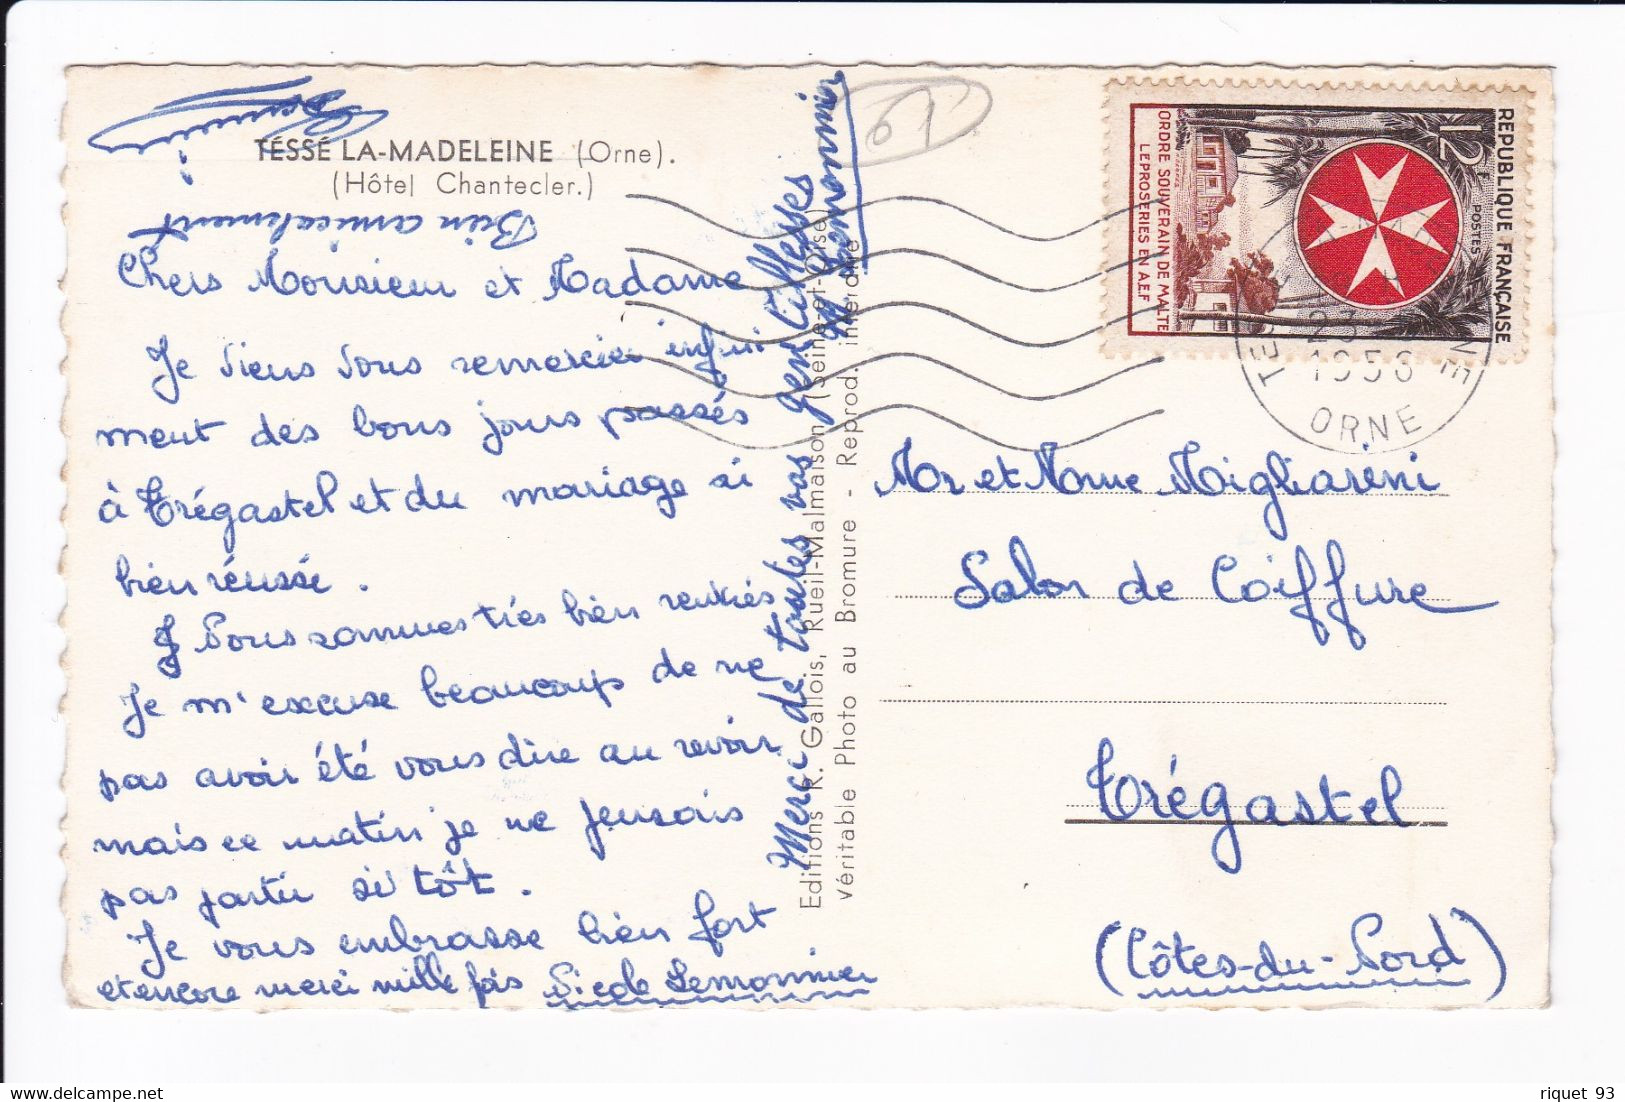 TESSÉ LA-MADELEINE (Orne).
(Hôtel Chantecler.)
Bien amicalement
Chers Monsieur et Madame
Je viens vous remercier infini
ment des bons jours passés
à Trégastel et du mariage si
bien réussé.
Nous sommes très bien rentrés
Je m'excuse beaucoup de ne
pas avoir été vous dire au revoir
mais ce matin je ne pensais
pas partir si tôt.
Je vous embrasse bien fort
et encore merci mille fois Nicole Lemonnier
Merci de toutes vos gentillesses
M Lemonnier
Editions R. Gallois, Rueil-Malmaison (Seine-et-Oise)
Véritable Photo au Bromure - Reprod. interdite
19
REPUBLIQUE FRANÇAISE
12F
POSTES
ORDRE SOUVERAIN DE MALTE
LEPROSERIES EN A.E.F
23
1956
ORNE
Mr et Mme Migliarini
Salon de Coiffure
Trégastel
(Côtes-du-Nord)
riquet 93